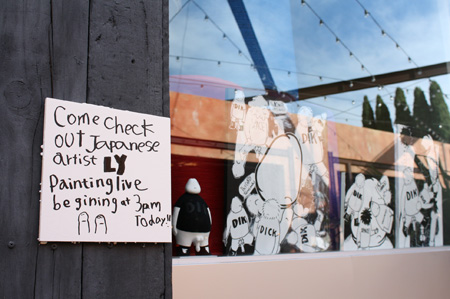 Come check
out Japanese
artist LY
Painting live
begining at 3pm
Today!!
DIK
DIK
DIK
DIK
DICK
DIK
DIK